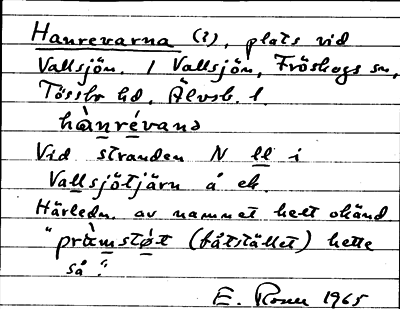 Hanrevarna (?), plats vid
Vallsjön. / Vallsjön, Fröskogs sn,
Tössbo hd, Älvsb. l.
hànrévanɔ
Vid stranden N ll i
Vallsjötjärn å ek.
Härledn. av namnet helt okänd
"pràmstøt (båtstället) hette
så."
E. 1965